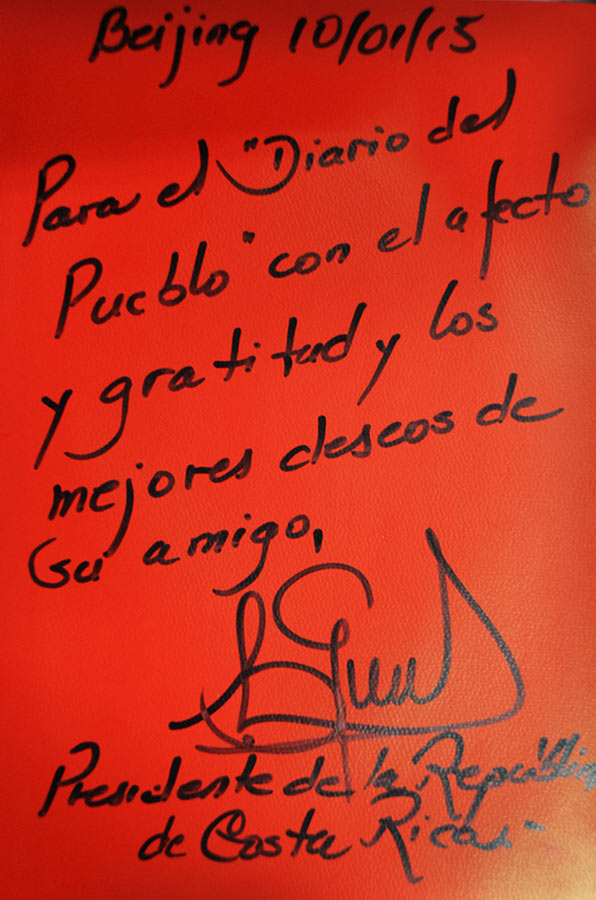 Beijing 10/01/15
Para el "Diario del
Pueblo" con el afecto
y gratitud y los
mejores deseos de
su amigo,
Presidente de la República
de Costa Rica.-